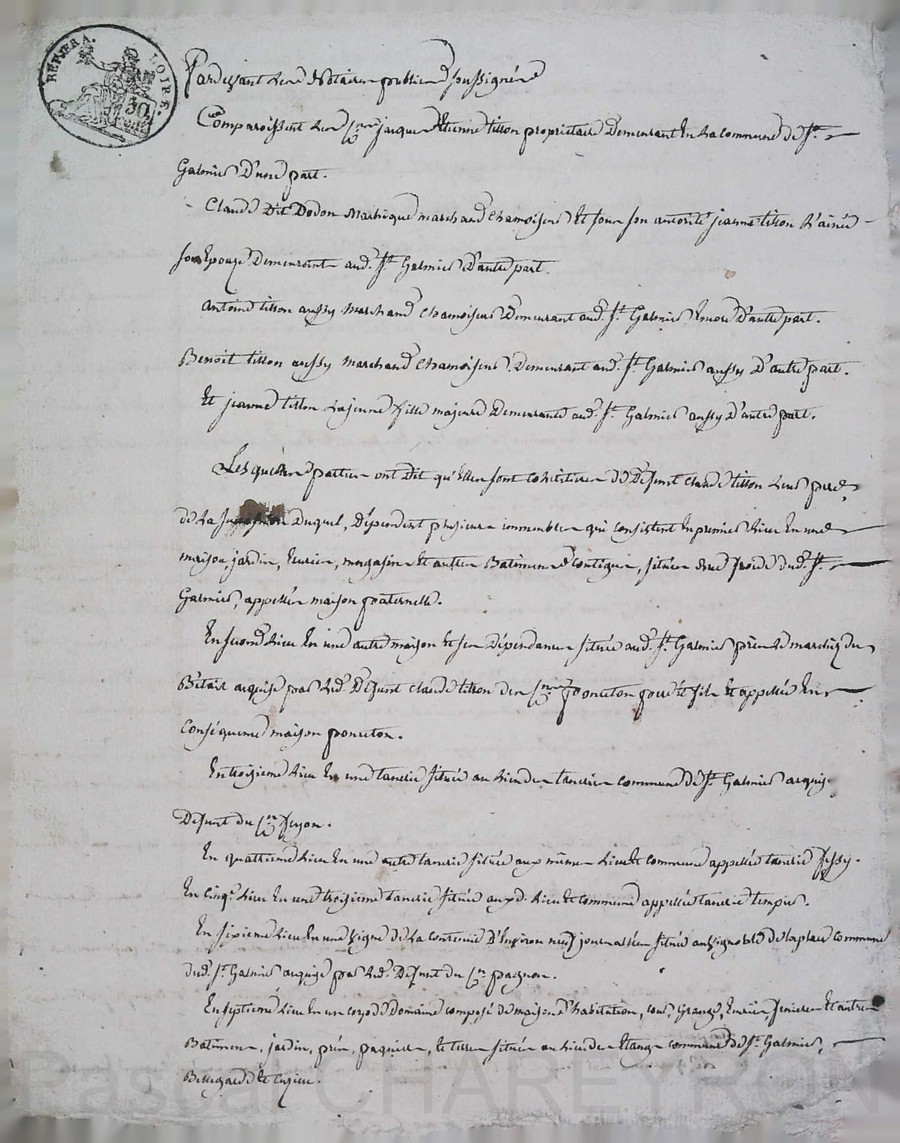 RÉP. FRA.
LOIRE.
Pardevant Les Notaires publics soussignés
Comparoissent Les Srs jacque Etienne tisson propriétaire Demeurant En La commune de St.
Galmier D'une part.
Claude Dit Dodon marchand chamoiseur Et sous son autorité jeanne tisson L'ainée
son Epouze Demeurants aud. St Galmier D'autre part.
Antoine tisson aussy marchand chamoiseur Demeurant aud. St. Galmier Encore D'autre part.
Benoit tisson aussy marchand chamoiseur Demeurant aud. St Galmier aussy D'autre part.
Et jeanne tisson La jeune fille majeure Demeurante aud. St. Galmier aussy D'autre part.
Lesquelles parties ont dit qu'Elles sont cohéritieres de Défunt claude tisson Leur pere,
de La succession Duquel, Dépendent plusieurs immeubles qui consistent En premier Lieu En une
maison, jardin, Ecurie, magasin Et autres Batimens contigus, située rue froide dud. St.
Galmier, appellée maison paternelle.
En second Lieu En une autre maison Et ses Dépendances située aud. St. Galmier près Le marché du
Betail acquise par Led. Défunt claude tisson des Srs ponceton pere Et fils Et appellée En
Conséquence maison ponceton.
En troisieme Lieu En une tanerie située au Lieu des taneries commune de St. Galmier acquis.
Défunt du Sr
En quatrieme Lieu En une autre tanerie située aux mêmes Lieu Et commune appellée tanerie
En cinqe. Lieu En une troisieme tanerie située auxd. Lieu Et commune appellée tanerie
En sixieme Lieu En une vigne de La contenue D'Environ neuf journalées située au vignoble de la plaine commune
dud. St. Galmier acquise par Led. Défunt du Sr
En septieme Lieu En un corps de Domaine composé de maison d'habitation, cour, Grange, Ecurie, feniere Et autres
Batimens, jardin, prés, paquier, Et terres située au Lieu des Etangs commune de St. Galmier,
Bellegarde Et Cuzieu.
Pascal CHAREYRON